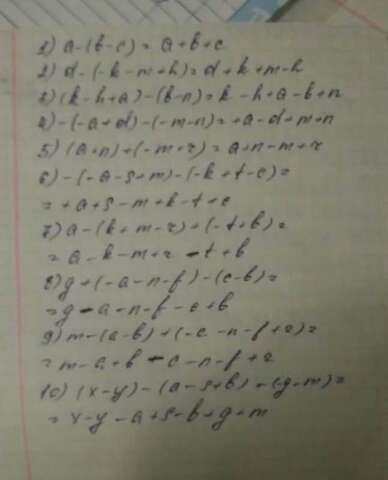 1) a-(b-c)= a+b+c
2) d-(-k-m+h)=d+k+m-h
3) (k-h+a)-(b-n)=k-h+a-b+n
4) -(-a+d)-(-m-n)=+a-d+m+n
5) (a+n)+(-m+r)=a+n-m+r
6) -(-a-s+m)-(-k+t-c)=
=+a+s-m+k-t+c
7) a-(k+m-r)+(-t+b)=
=a-k-m+r-t+b
8) g+(-a-n-f)-(c-b)=
=g-a-n-f-c+b
9) m-(a-b)+(-c-n-f+r)=
=m-a+b-c-n-f+r
10) (x-y)-(a-s+b)-(g-m)=
=x-y-a+s-b+g+m